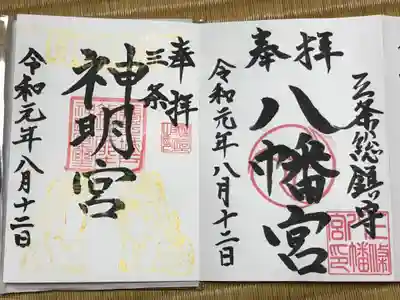 三条総鎮守
奉拝
八幡宮
令和元年八月十二日
三条八幡宮印
奉拝
三条
神明宮
令和元年八月十二日